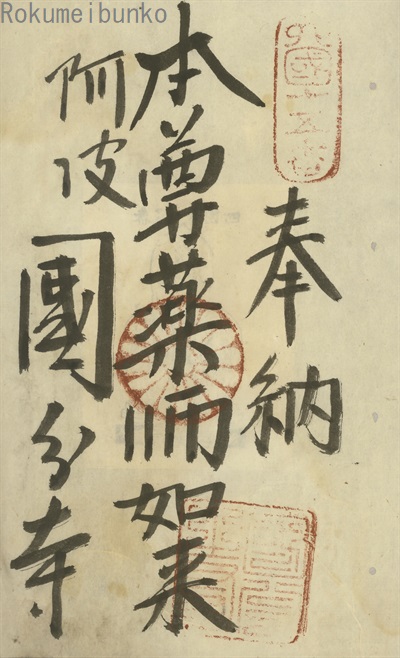 Rokumeibunko
奉納
本尊薬師如来
阿波
國分寺